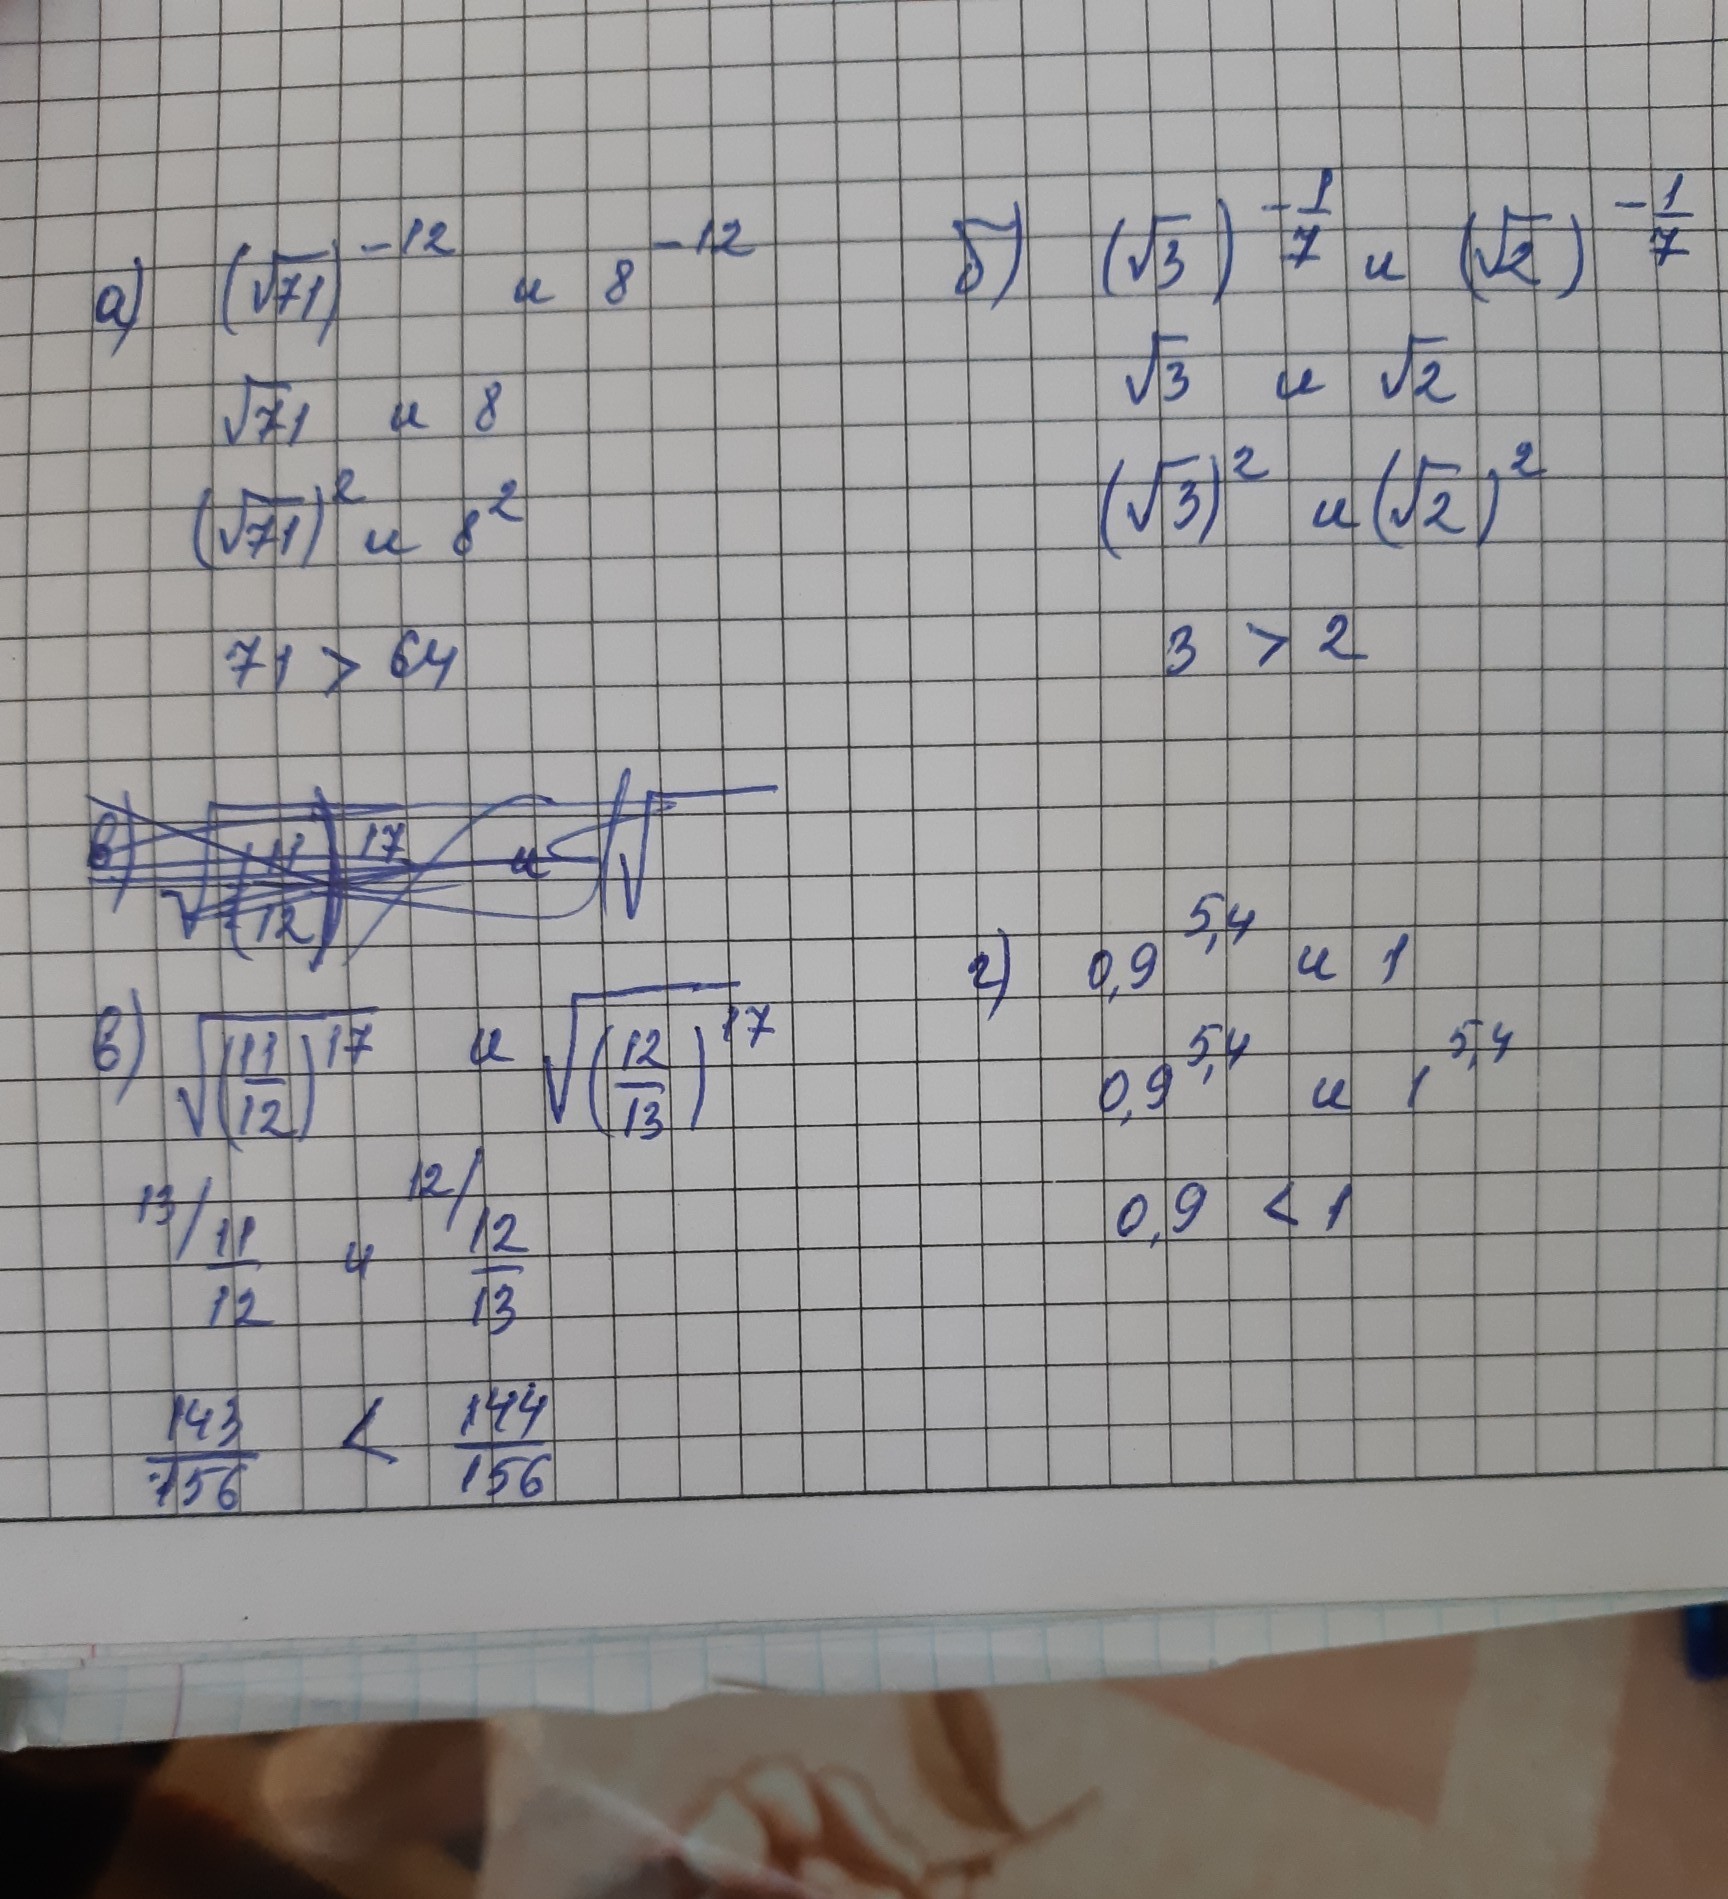 а) (√71)^-12 и 8^-12
√71 и 8
(√71)^2 и 8^2
71 > 64
б) (√3)^-1/7 и (√2)^-1/7
√3 и √2
(√3)^2 и (√2)^2
3 > 2
в) √(11/12)^17 и √
в) √(11/12)^17 и √(12/13)^17
13/ 11/12 и 12/ 12/13
143/156 < 144/156
г) 0,9^5,4 и 1
0,9^5,4 и 1^5,4
0,9 < 1